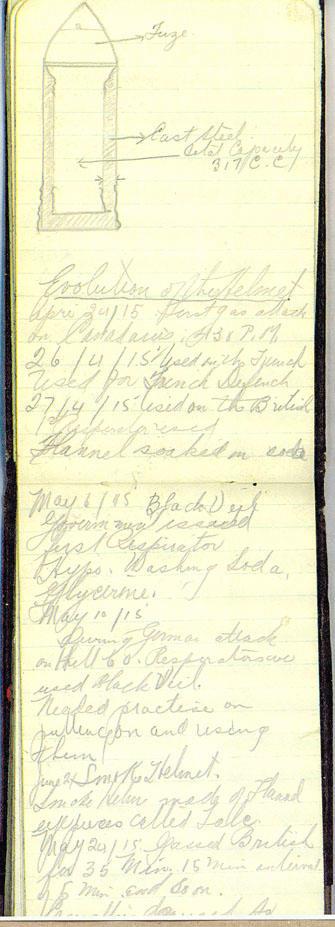 Fuze
Cast Steel
Total Capacity
317 C.C.
Evolution of the Helmet
April 24/15 First gas attack
on Canadians 4.30 P.M
26/4/15 Used on the French
Used for French Defench
27/4/15 used on the British
1st respirator used
Flannel soaked in soda
May 6/15 Black Veil
Government issued
first respirator
Hypo. Washing Soda,
Glycerine.
May 10/15
During German attack
on Hill 60. Respirators we
used Black Veil.
Needed practise on
putting on and using
them
June 24 Smoke Helmet.
Smoke Helm made of Flannel
called
May 24/15 Gassed British
for 35 Min. 15 Min interval
5 Min and soon.